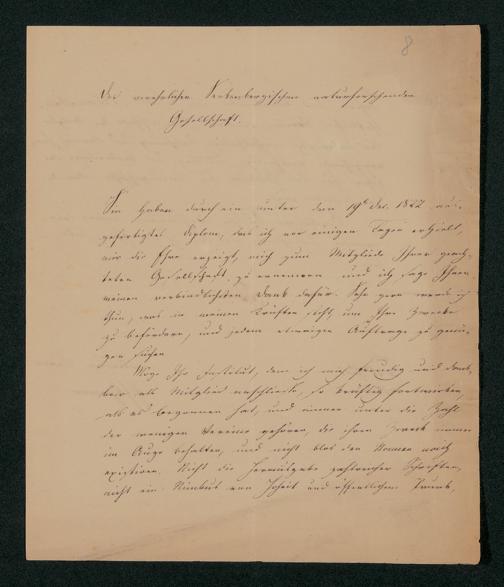 8
Der verehrlichen Senkenbergischen naturforschenden
Gesellschaft.
Sie haben durch ein unter dem 19t Dec. 1822 aus-
gefertigtes Diplom, das ich vor einigen Tagen erhielt,
mir die Ehre erzeigt, mich zum Mitgliede Ihrer geach-
teten Gesellschaft zu ernennen und ich sage Ihnen
meinen verbindlichsten Dank dafür. Sehr gern werde ich
thun, was in meinen Kräften steht, um Ihre Zwecke
zu befördern, und jedem etwaigen Auftrage zu genü-
gen suchen
Möge Ihr Institut, dem ich mich freudig und dank-
bar als Mitglied anschliesse, so kräftig fortwirken,
als es begonnen hat, und immer unter die Zahl
der wenigen Vereine gehören, die ihren Zweck immer
im Auge behalten, und nicht blos dem Namen nach
existiren. Nicht die Herausgabe zahlreicher Schriften,
nicht ein Nimbus von Hoheit und öffentlichem Prunk,